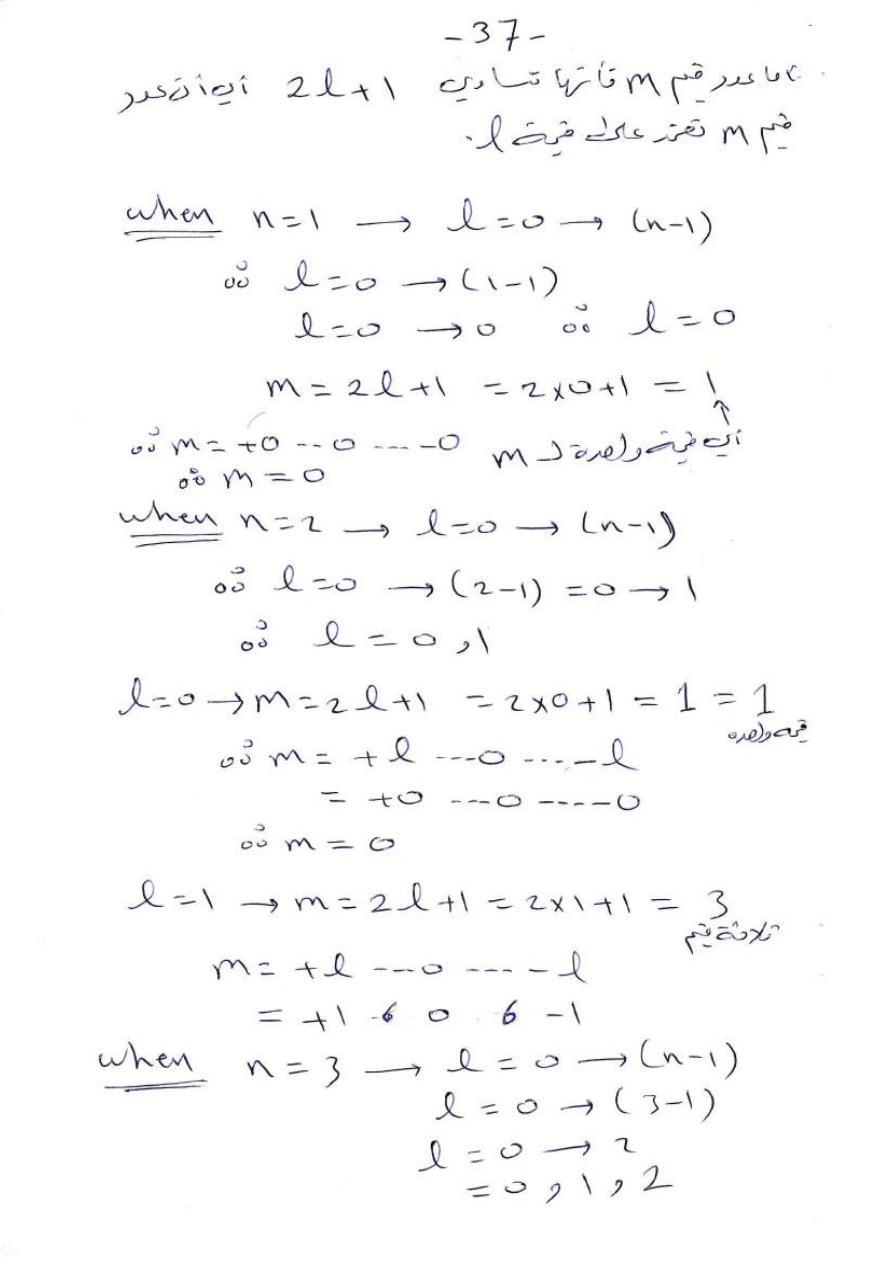 -37-
اما عدد قيم m فأنها تساوي 2l+1 أي أن عدد
قيم m تعتمد على قيمة l.
when n=1 → l=0 → (n-1)
∴ l=0 → (1-1)
l=0 → 0 ∴ l=0
m = 2l+1 = 2x0+1 = 1
↑
∴ m = +0 --0 ----0 أي قيمة واحدة لـ m
∴ m = 0
when n=2 → l=0 → (n-1)
∴ l=0 → (2-1) = 0 → 1
∴ l = 0 , 1
l=0 → m=2l+1 = 2x0+1 = 1 = 1
قيمه واحده
∴ m = +l ---0 ....-l
= +0 ---0 ----0
∴ m = 0
l=1 → m=2l+1 = 2x1+1 = 3
ثلاثة قيم
m = +l ---0 ---- -l
= +1 6 0 6 -1
when n=3 → l=0 → (n-1)
l=0 → (3-1)
l=0 → 2
=0 , 1 , 2